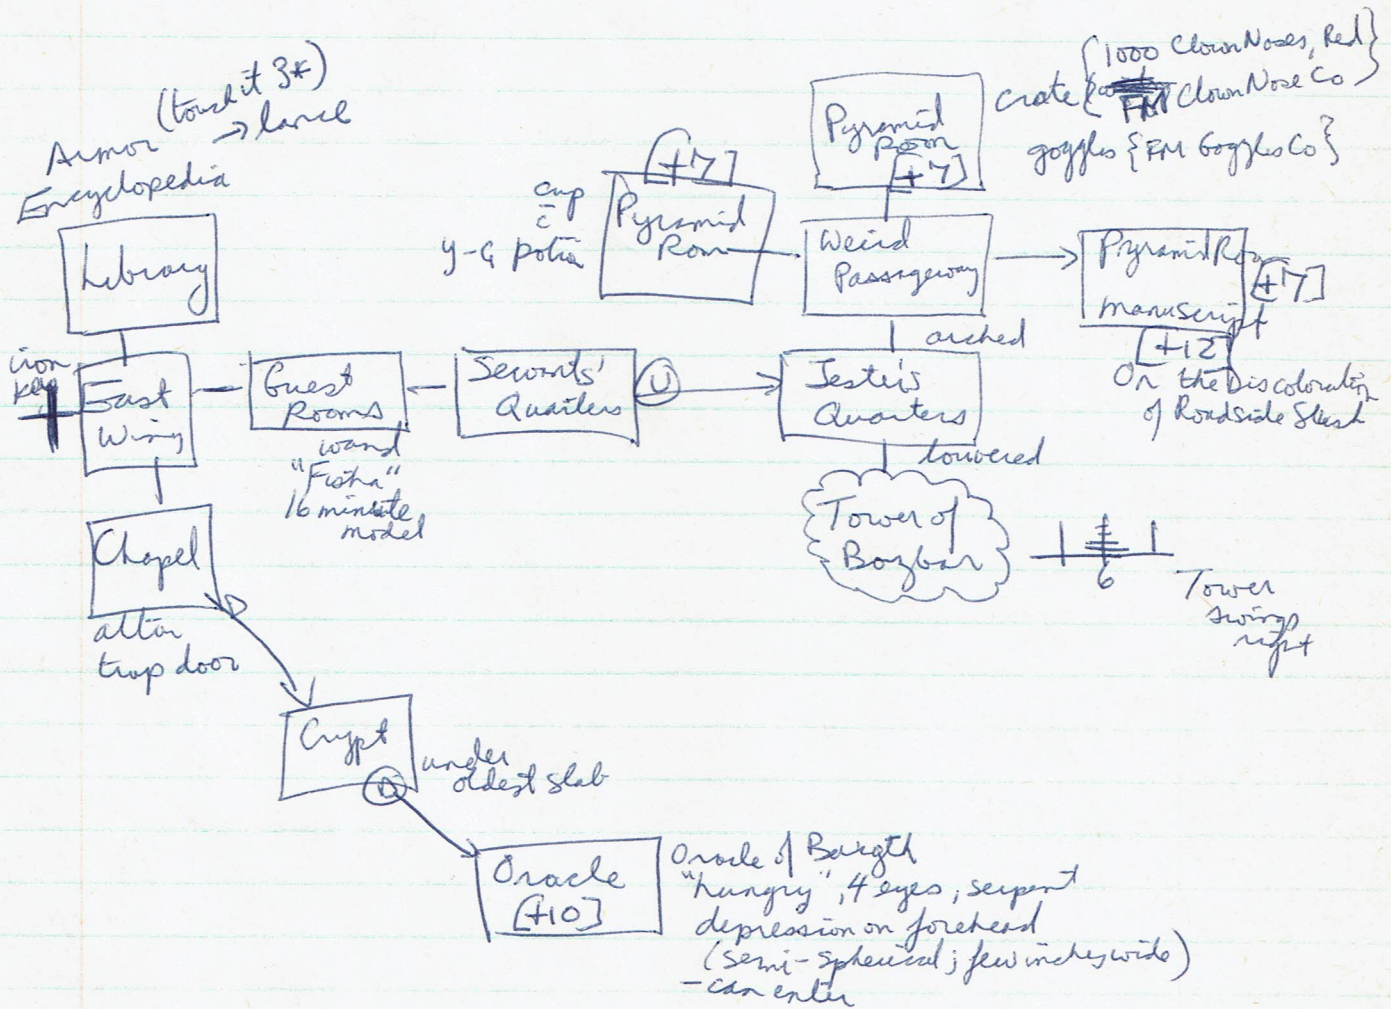 (touch it 3*)
→ lance
Armor
Encyclopedia
Library
iron
key
East
Wing
Guest
Rooms
wand
"Fisha"
16 minute
model
Servants'
Quarters
U
Jester's
Quarters
arched
louvered
Tower of
Bozbar
6
Tower
swings
right
cup
c̄
y-G potion
[+7]
Pyramid
Room
Pyramid
Room
[+7]
crate {1000 Clown Noses, Red}
FM Clown Nose Co
goggles {FM Goggles Co}
Weird
Passageway
Pyramid Room
[+7]
manuscript
[+12]
On the Discoloration
of Roadside Slush
Chapel
D
altar
trap door
Crypt
D
under
oldest slab
Oracle
[+10]
Oracle of Borgth
"hungry", 4 eyes, serpent
depression on forehead
(semi-spherical; few inches wide)
- can enter